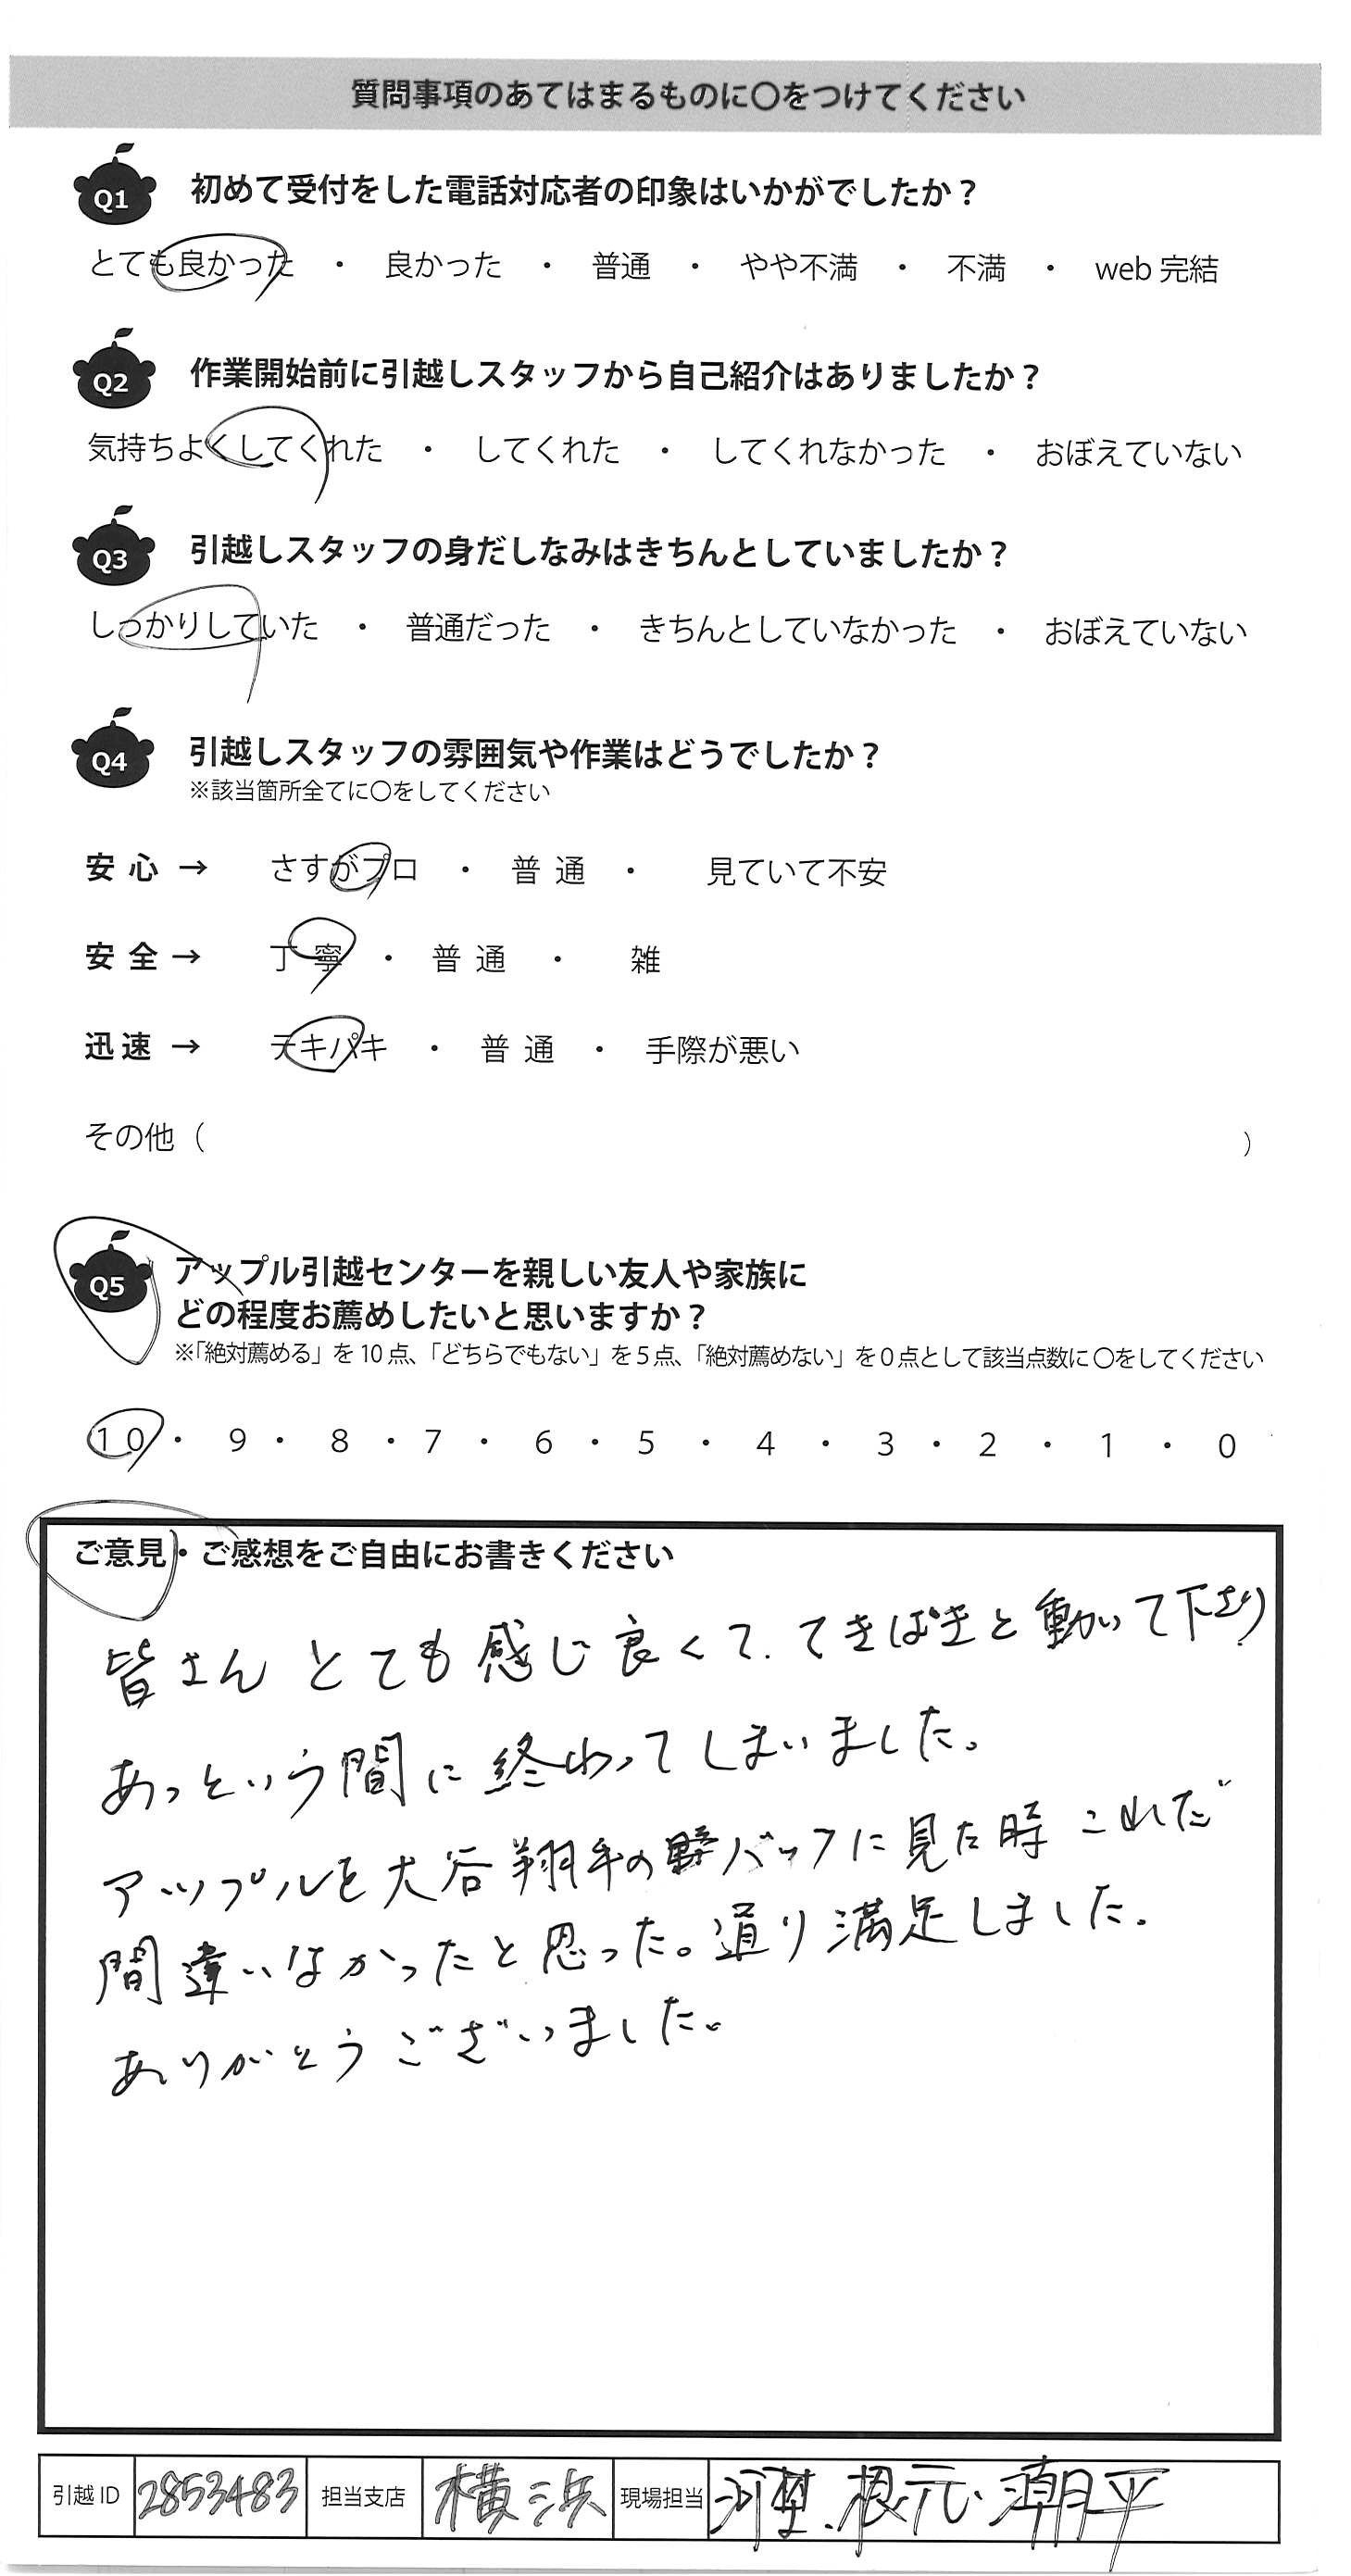 質問事項のあてはまるものに〇をつけてください
Q1 初めて受付をした電話対応者の印象はいかがでしたか？
とても良かった ・ 良かった ・ 普通 ・ やや不満 ・ 不満 ・ web 完結
Q2 作業開始前に引越しスタッフから自己紹介はありましたか？
気持ちよくしてくれた ・ してくれた ・ してくれなかった ・ おぼえていない
Q3 引越しスタッフの身だしなみはきちんとしていましたか？
しっかりしていた ・ 普通だった ・ きちんとしていなかった ・ おぼえていない
Q4 引越しスタッフの雰囲気や作業はどうでしたか？
※該当箇所全てに〇をしてください
安心 → さすがプロ ・ 普通 ・ 見ていて不安
安全 → 丁寧 ・ 普通 ・ 雑
迅速 → テキパキ ・ 普通 ・ 手際が悪い
その他（ ）
Q5 アップル引越センターを親しい友人や家族に
どの程度お薦めしたいと思いますか？
※「絶対薦める」を10点、「どちらでもない」を5点、「絶対薦めない」を0点として該当点数に〇をしてください
10 ・ 9 ・ 8 ・ 7 ・ 6 ・ 5 ・ 4 ・ 3 ・ 2 ・ 1 ・ 0
ご意見・ご感想をご自由にお書きください
皆さんとても感じ良くて、てきぱきと動いて下さり
あっという間に終わってしまいました。
アップルを大谷翔平の バックに見た時これだ
間違いなかったと思った。通り満足しました。
ありがとうございました。
引越ID 2853483 担当支店 横浜 現場担当 根元・潮平